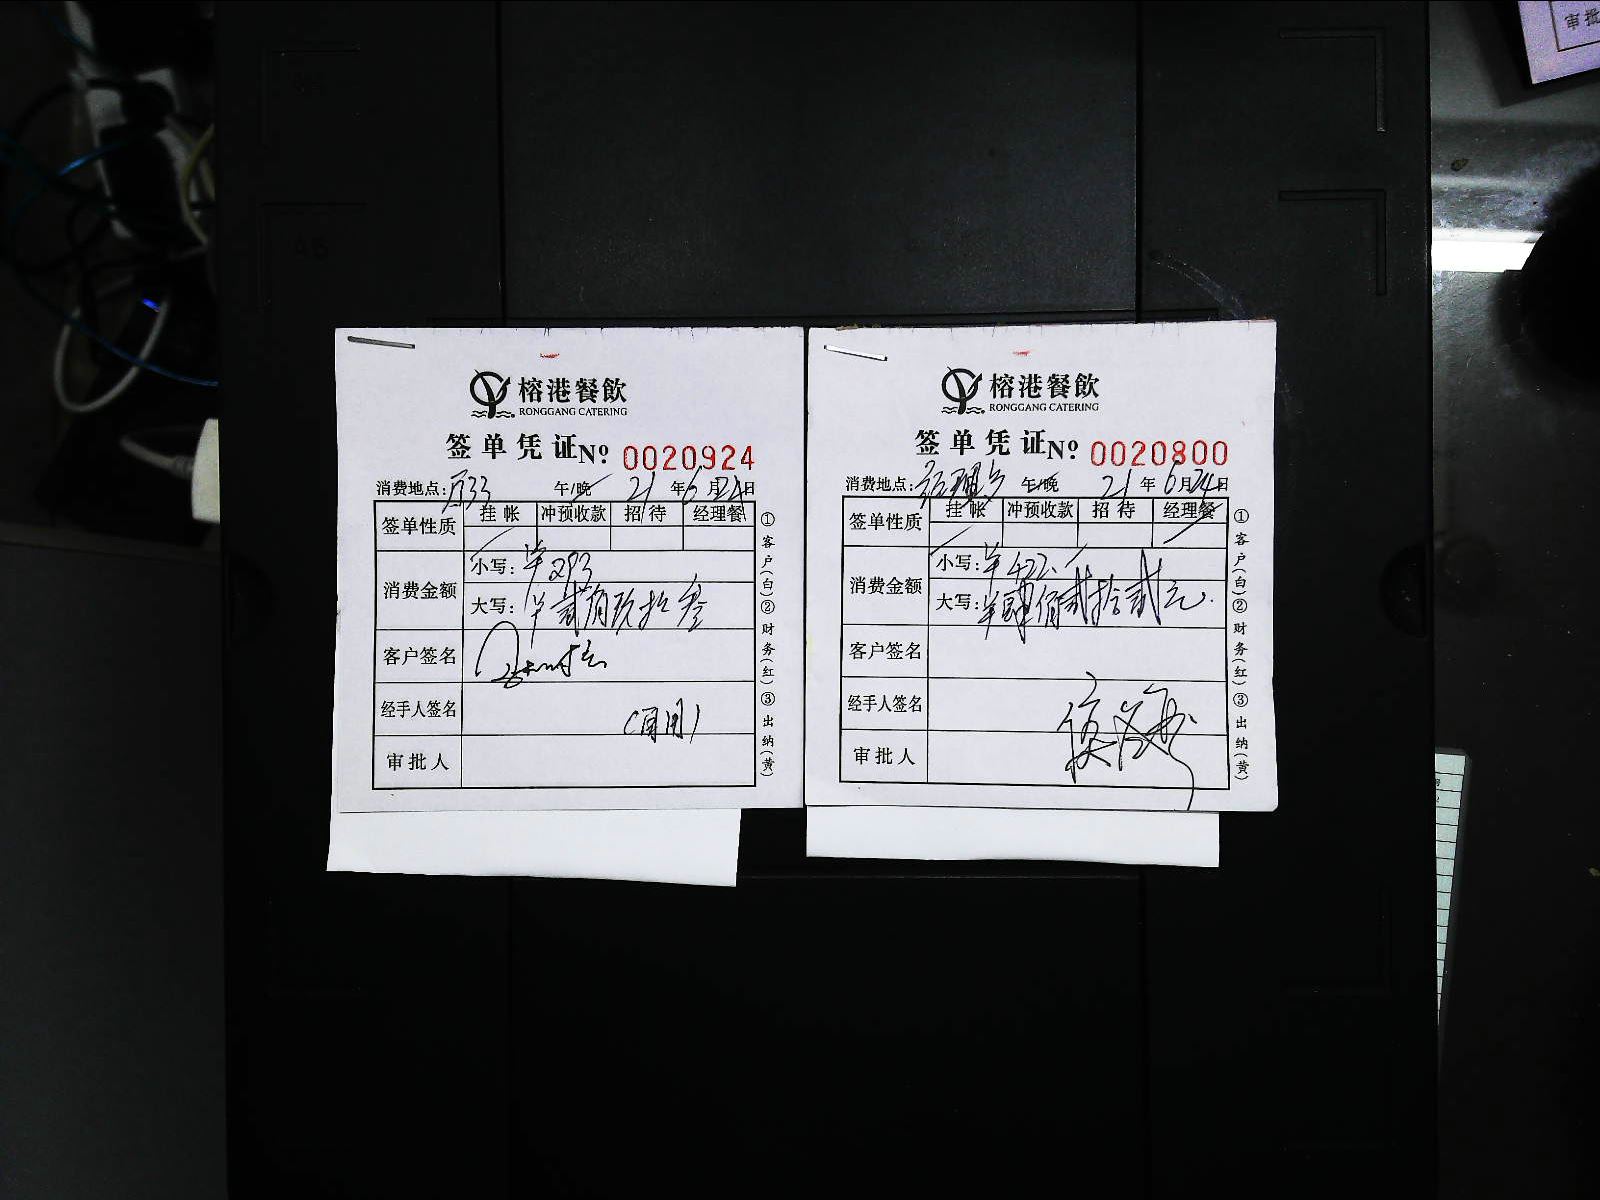 审批
榕港餐飲
RONGGANG CATERING
签单凭证 No 0020924
消费地点: 厅33 午/晚 21 年 6 月 24 日
签单性质 挂帐 冲预收款 招待 经理餐
消费金额
小写: ¥293
大写: ¥贰佰玖拾叁
客户签名
经手人签名
审批人
①客户(白)②财务(红)③出纳(黄)
榕港餐飲
RONGGANG CATERING
签单凭证 No 0020800
消费地点: 午/晚 21 年 6 月 24 日
签单性质 挂帐 冲预收款 招待 经理餐
消费金额
小写: ¥422.
大写: ¥肆佰贰拾贰元.
客户签名
经手人签名
审批人
①客户(白)②财务(红)③出纳(黄)